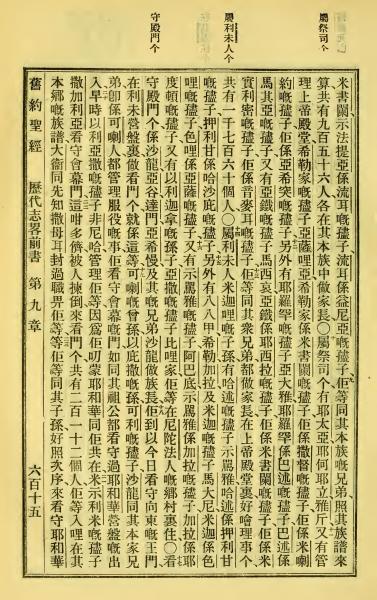 屬祭司个
屬利未人个
守殿門个
米書闌示法提亞係流耳嘅孻子流耳係益尼亞嘅孻子佢等同其本族嘅兄弟照其族譜來
算共有九百五十六人各在其本族中做家長〇屬祭司个有耶太亞耶何耶立雅斤又有管
理上帝殿堂希勒家嘅孻子亞薩哩亞希勒家係米書闌嘅孻子佢係撒督嘅孻子佢係米喇
約嘅孻子佢係亞希突嘅孻子另外有耶羅罕嘅孻子亞大雅耶羅罕係巴述嘅孻子巴述係
馬其亞嘅孻子又有亞鐵嘅孻子馬西哀亞鐵係耶西拉嘅孻子佢係米書闌嘅孻子佢係米
實利密嘅孻子佢係音麥耳嘅孻子佢等同其衆兄弟都做家長在上帝殿堂裏好會理事个
共有一千七百六十個人〇屬利未人米迦哩嘅子孫有哈述嘅孻子示罵雅哈述係押利甘
嘅孻子押利甘係哈沙庇嘅孻子另外有八八甲希勒加拉及米迦嘅孻子馬大尼米迦係色
哩嘅孻子色哩係亞薩嘅孻子又有示罵雅嘅孻子阿巴底示罵雅係加拉嘅孻子加拉係耶
度頓嘅孻子又有以利迦拿嘅孫子亞撒嘅孻子比哩家佢等在尼陀法人嘅鄉村裏住〇看
守殿門个係沙龍亞谷達門亞希慢及其嘅兄弟沙龍做族長佢到以今日看守向東嘅王門
在利未營盤裏做看門个就係這等可喇嘅曾孫以庇撒嘅孫可利嘅孻子沙龍同其本家兄
弟卽係可喇人都管理服役嘅事佢看守會幕嘅門如同其祖公都看守過耶和華營盤嘅出
入早時以利亞撒嘅孻子非尼哈管理佢等因爲佢叨蒙耶和華同佢共在米示利米嘅孻子
撒加利亞看守會幕門這咁多儕被人揀倒來看門个共有二百一十二個人佢等入哩在其
本鄕嘅族譜大衞同先知撒母耳封過職畀佢等佢等同其子孫好照次序來看守耶和華
舊約聖經 歷代志畧前書 第九章 六百十五